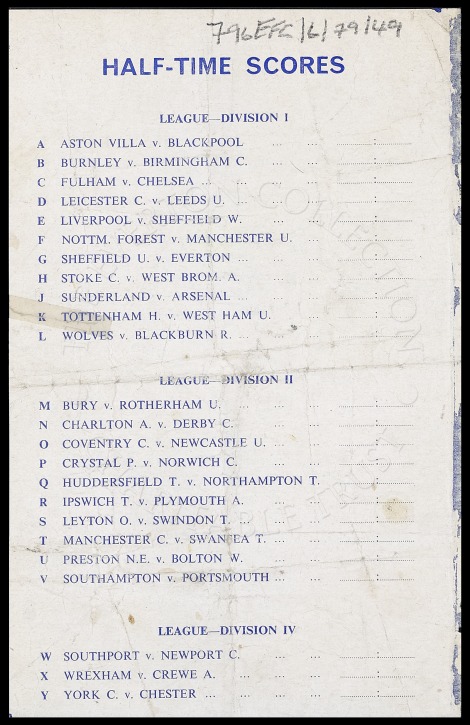 796EFC/6/79/49
HALF-TIME SCORES
LEAGUE—DIVISION I
A ASTON VILLA v. BLACKPOOL ... ... :
B BURNLEY v. BIRMINGHAM C. ... ... :
C FULHAM v. CHELSEA ... ... ... :
D LEICESTER C. v. LEEDS U. ... ... ... :
E LIVERPOOL v. SHEFFIELD W. ... ... :
F NOTTM. FOREST v. MANCHESTER U. ... :
G SHEFFIELD U. v. EVERTON ... ... ... :
H STOKE C. v. WEST BROM. A. ... ... :
J SUNDERLAND v. ARSENAL ... ... ... :
K TOTTENHAM H. v. WEST HAM U. ... :
L WOLVES v. BLACKBURN R. ... ... ... :
LEAGUE—DIVISION II
M BURY v. ROTHERHAM U. ... ... ... :
N CHARLTON A. v. DERBY C. ... ... :
O COVENTRY C. v. NEWCASTLE U. ... ... :
P CRYSTAL P. v. NORWICH C. ... ... :
Q HUDDERSFIELD T. v. NORTHAMPTON T. :
R IPSWICH T. v. PLYMOUTH A. ... ... :
S LEYTON O. v. SWINDON T. ... ... ... :
T MANCHESTER C. v. SWANSEA T. ... ... :
U PRESTON N.E. v. BOLTON W. ... ... :
V SOUTHAMPTON v. PORTSMOUTH ... ... :
LEAGUE—DIVISION IV
W SOUTHPORT v. NEWPORT C. ... ... :
X WREXHAM v. CREWE A. ... ... ... :
Y YORK C. v. CHESTER ... ... ... ... :